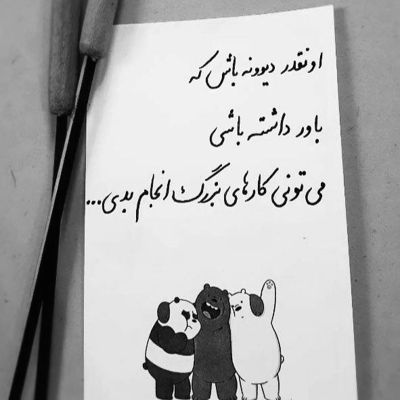 اونقدر دیوونه باش که
باور داشته باشی
می تونی کارهای بزرگ انجام بدی...